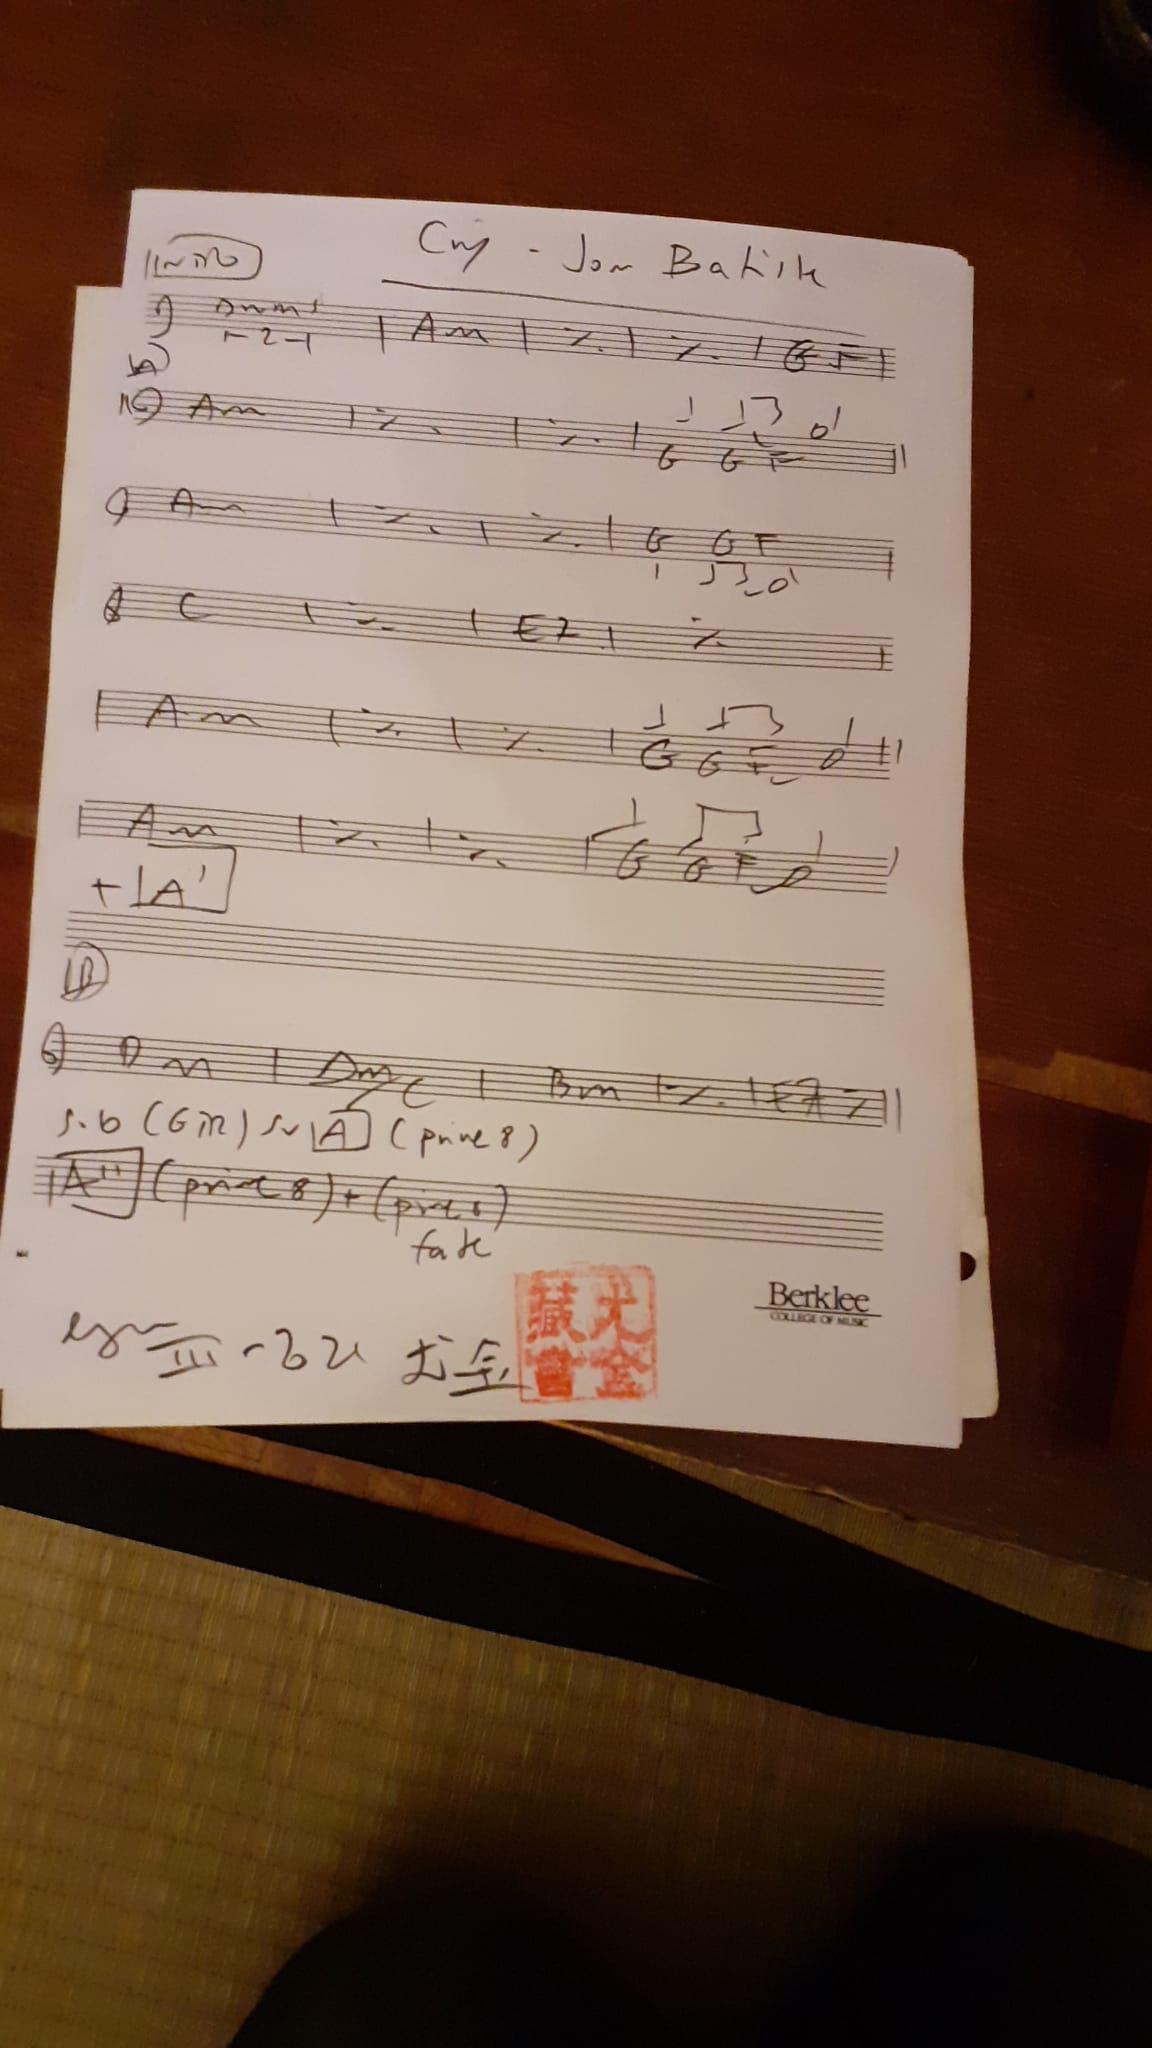 Intro
Cry - Jon Batiste
Drums | Am | ٪ | ٪ | G F |
1-2-1
A
Am | ٪ | ٪ | G G F ||
Am | ٪ | ٪ | G G F |
C | ٪ | E7 | ٪ |
| Am | ٪ | ٪ | G G F ||
| Am | ٪ | ٪ | G G F |
+ A'
B
Dm | Dm/C | Bm | ٪ | E7 ٪ ||
A (prime 8)
A'' (prime 8) + (prime 8)
fade
藏大
書金
Berklee
COLLEGE OF MUSIC